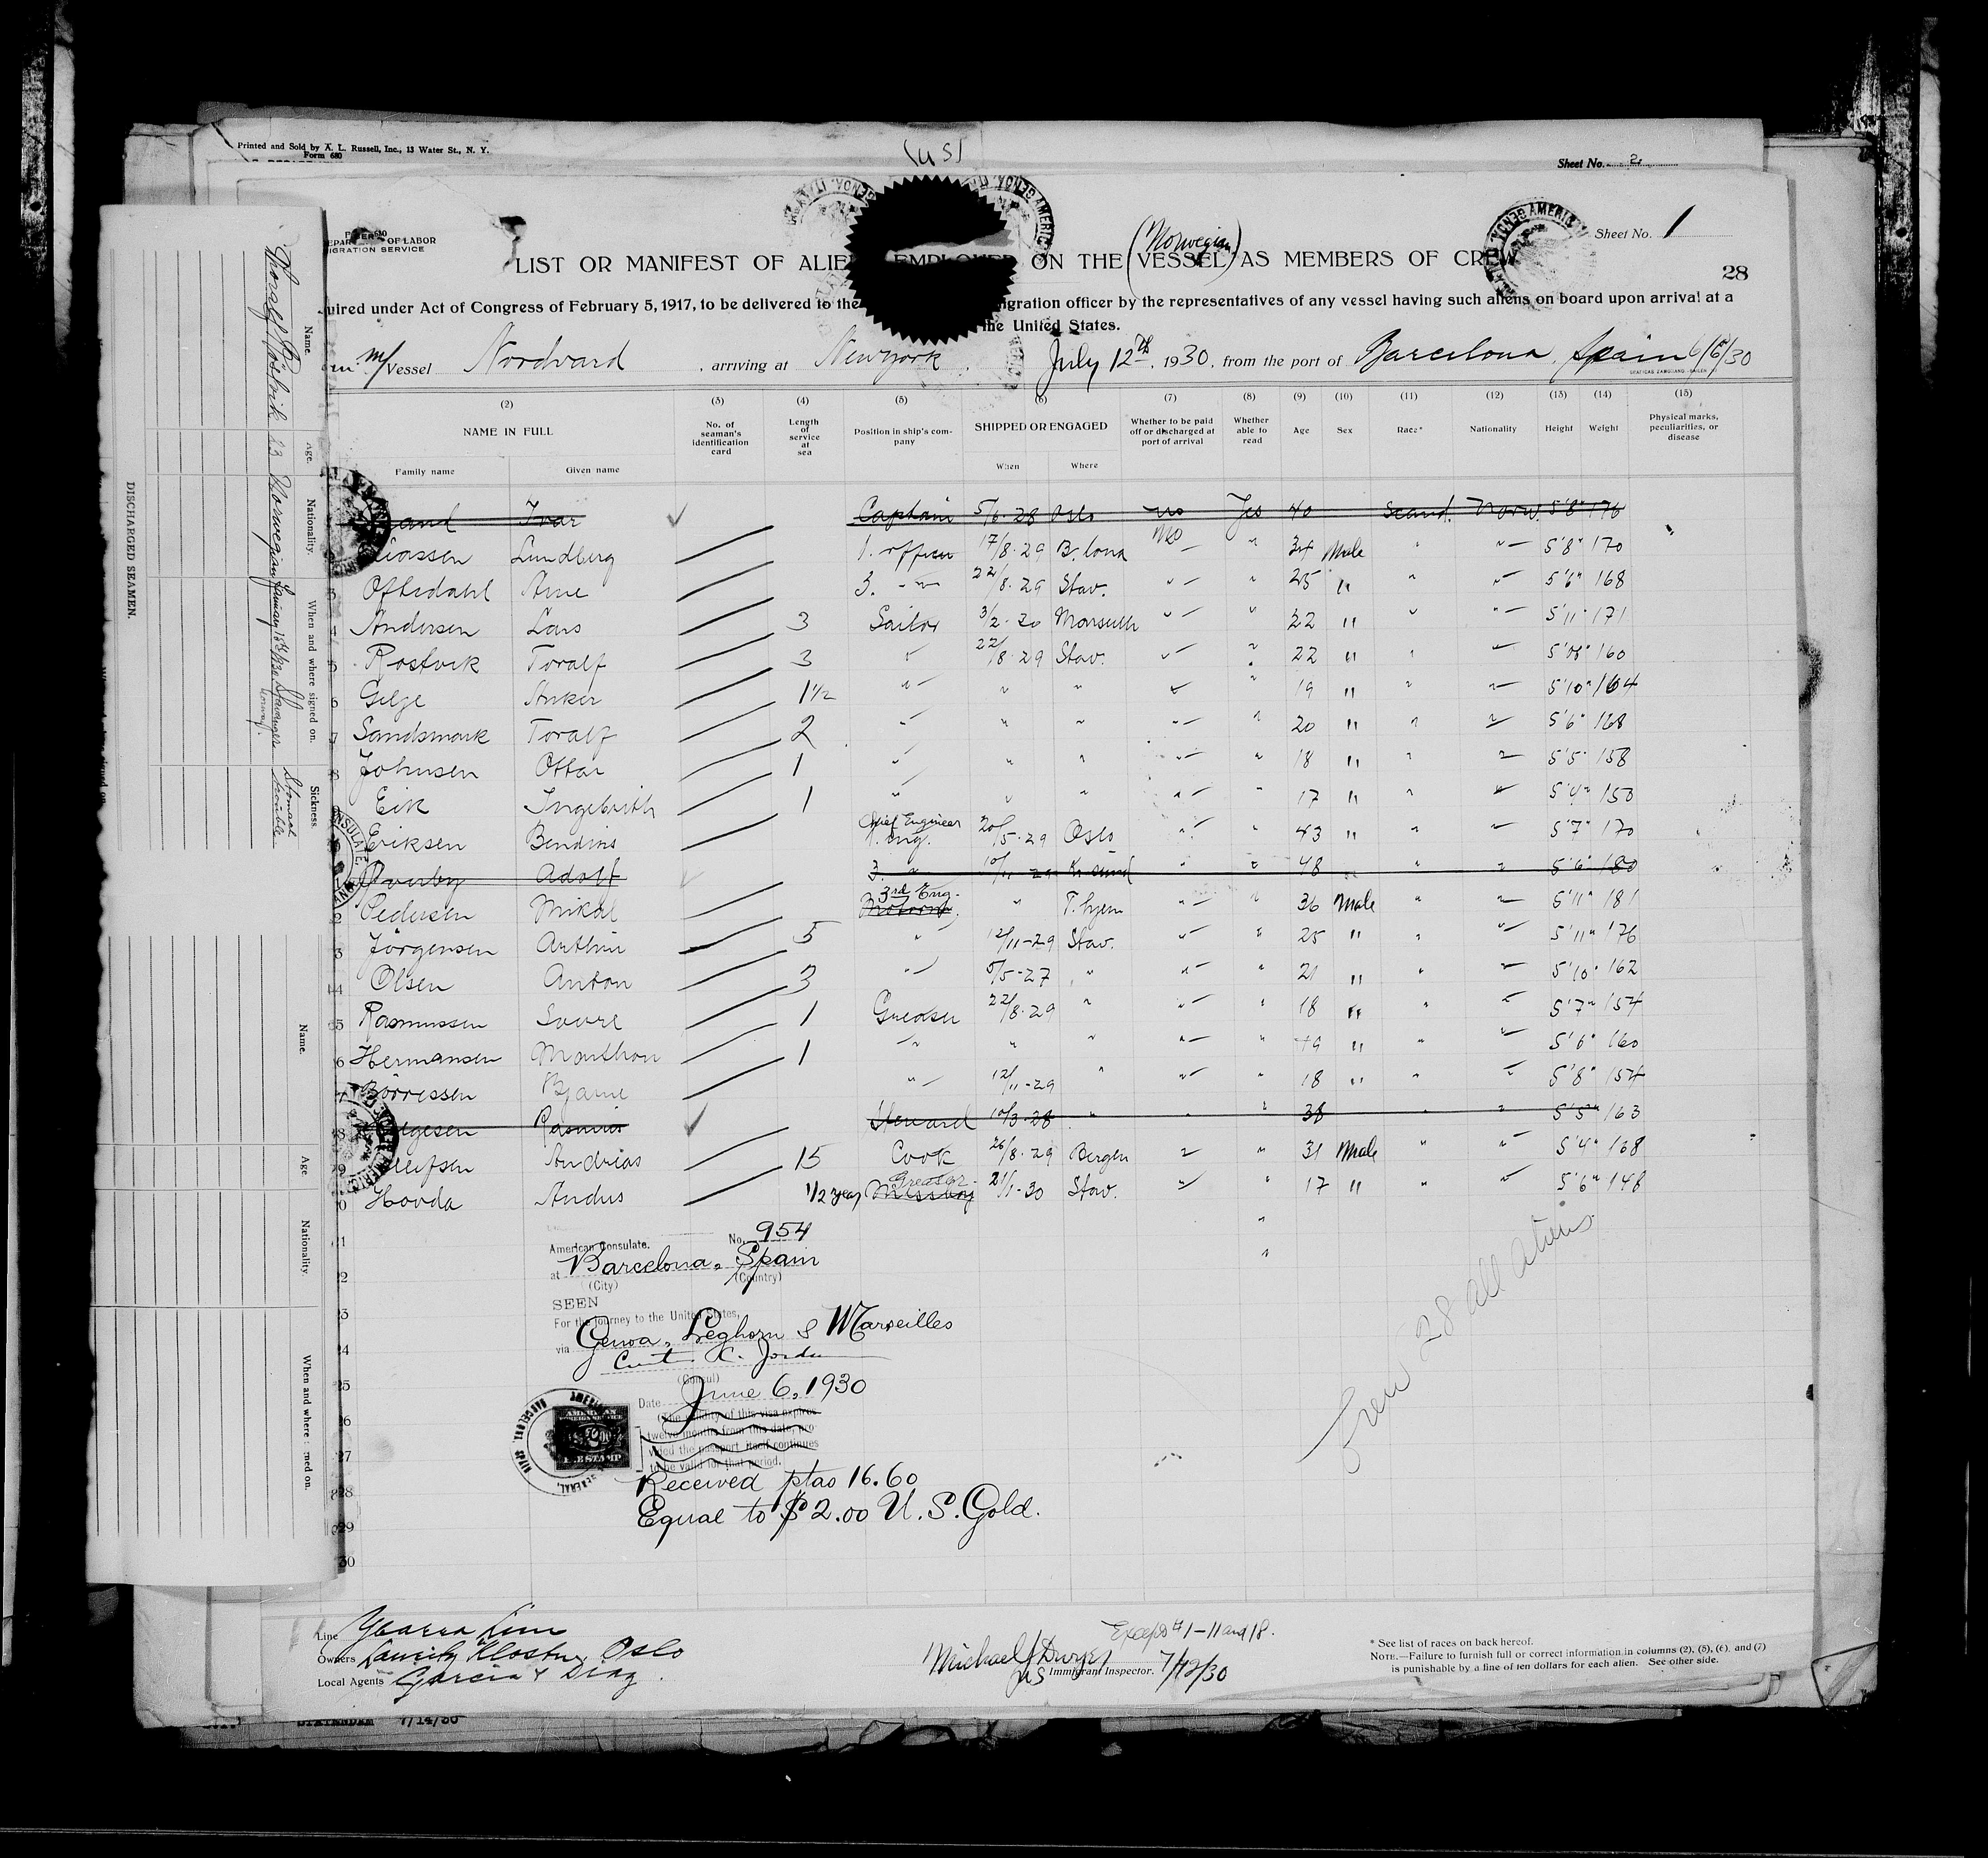 Printed and Sold by A. L. Russell, Inc., 13 Water St., N. Y.
Form 680
(US)
Sheet No. 2
OF LABOR
IGRATION SERVICE
Sheet No. 1
(Norwegian)
LIST OR MANIFEST OF ALIE EMPLOYED ON THE VESSEL AS MEMBERS OF CREW
28
uired under Act of Congress of February 5, 1917, to be delivered to the igration officer by the representatives of any vessel having such aliens on board upon arrival at a
the United States.
m/ Vessel Nordvard , arriving at New York , July 12th, 1930, from the port of Barcelona, Spain 6/6/30
(2) (3) (4) (5) (6) (7) (8) (9) (10) (11) (12) (13) (14) (15)
NAME IN FULL
Family name Given name
No. of seaman's identification card
Length of service at sea
Position in ship's company
SHIPPED OR ENGAGED
When Where
Whether to be paid off or discharged at port of arrival
Whether able to read
Age Sex Race* Nationality Height Weight
Physical marks, peculiarities, or disease
and Ivar Captain 5/6-28 Oslo no Yes 40 Scand. Norw. 5'8" 176
Lundberg 1. officer 17/8-29 B.lona no " 34 Male " " 5'8" 170
3 Oftedahl Arne 3. " 22/8-29 Stav. " " 25 " " " 5'6" 168
4 Andersen Lars 3 Sailor 3/2-30 Marseille " " 22 " " " 5'11" 171
5 Rostvik Toralf 3 " 22/8-29 Stav. " " 22 " " " 160
6 Gilje Anker 1 1/2 " " " " " 19 " " " 5'10" 164
7 Sandsmark Toralf 2 " " " " " 20 " " " 5'6" 168
8 Johnsen Ottar 1 " " " " " 18 " " " 5'5" 158
9 Eik Ingebrith 1 " " " " " 17 " " " 5'4" 150
Eriksen Bendins Chief Engineer 1. Eng. 20/5-29 Oslo " " 43 " " " 5'7" 170
Adolf 3. " 10/11-29 Kr.sund " " 48 " " 5'6" 180
2 Pedersen Mikal 3rd Eng. " T. hjem " " 36 Male " " 5'11" 181
3 Jörgensen Arthur 5 " 12/11-29 Stav. " " 25 " " " 5'11" 176
14 Olsen Anton 3 " 5/5-27 " " " 21 " " " 5'10" 162
15 Rasmussen Sverre 1 Greaser 22/8-29 " " " 18 " " " 5'7" 154
6 Hermansen Monthon 1 " " " " " 19 " " " 5'6" 160
7 Börressen Bjarne " 12/11-29 " " " 18 " " " 5'8" 154
8 Rasmus Steward 10/3-28 " " " 38 " " 5'5" 163
9 Andreas 15 Cook 26/8-29 Bergen " " 31 Male " " 5'4" 168
0 Hovda Andres 1/2 year Greaser Messboy 21/1-30 Stav. " " 17 " " " 5'6" 148
21
22
23
24
25
26
27
28
29
30
American Consulate. No. 954
at Barcelona, Spain
(City) (Country)
SEEN
For the journey to the United States,
via Genoa, Leghorn & Marseilles
(Consul)
Date June 6, 1930
(The validity of this visa expires
twelve months from this date, pro-
vided the passport itself continues
to be valid for that period.
AMERICAN
FOREIGN SERVICE
FEE STAMP
Received ptas 16.60
Equal to $2.00 U. S. Gold.
Crew 28 all aliens
Line Ybarra Line
Owners Lauritz Kloster, Oslo
Local Agents Garcia & Diaz.
Except #1-11 and 18.
Michael J Dwyer
US Immigrant Inspector. 7/12/30
* See list of races on back hereof.
NOTE.—Failure to furnish full or correct information in columns (2), (5), (6), and (7)
is punishable by a fine of ten dollars for each alien. See other side.
7/14/30
DISCHARGED SEAMEN.
Name. Age. Nationality. When and where signed on. Sickness.
Thoralf Röstvik 23 Norwegian Stavanger Norway. Stomach trouble
Name. Age Nationality. When and where signed on.